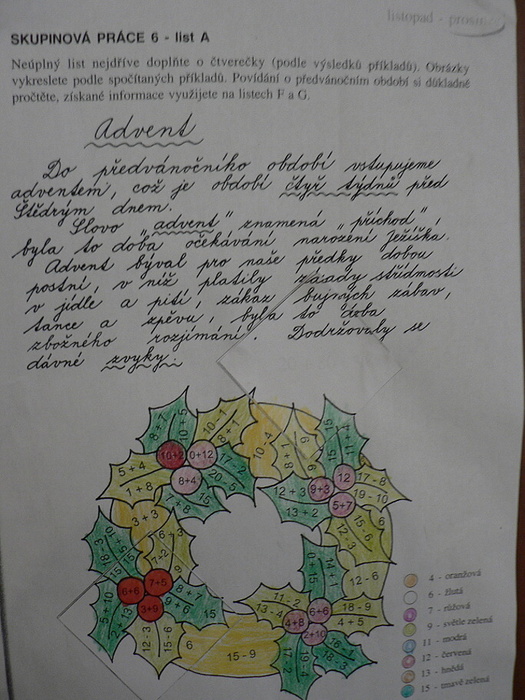 listopad - prosinec
SKUPINOVÁ PRÁCE 6 - list A
Neúplný list nejdříve doplňte o čtverečky (podle výsledků příkladů). Obrázky
vykreslete podle spočítaných příkladů. Povídání o předvánočním období si důkladně
pročtěte, získané informace využijete na listech F a G.
Advent
Do předvánočního období vstupujeme
adventem, což je období čtyř týdnů před
Štědrým dnem.
Slovo „advent" znamená „příchod",
byla to doba očekávání narození Ježíška.
Advent býval pro naše předky dobou
postní, v níž platily zásady střídmosti
v jídle a pití, zákaz bujných zábav,
tance a zpěvu, byla to doba
zbožného rozjímání. Dodržovaly se
dávné zvyky.
8+7 10+5 10-1 8+1 10-4 8+1 9 15 15 11+4
10+2 0+12 17-2 9 12 17-8
5+4 8+4 20-5 12+3 9+3 19-10
1+8 7+8 15 13+2 5+7 6
3+3 15-6 12-3
6+3 0+15 14+1
15 17-2 9 12-6
6+6 7+5 8+7 11-2 18-9
3+9 9+6 13-4 6+6 4+5
5+10 2+13 15 4+8 2+10 16-1
12-3 15-6 6 15-9 17-2 19-4 18-3
4 - oranžová
6 - žlutá
7 - růžová
9 - světle zelená
11 - modrá
12 - červená
13 - hnědá
15 - tmavě zelená